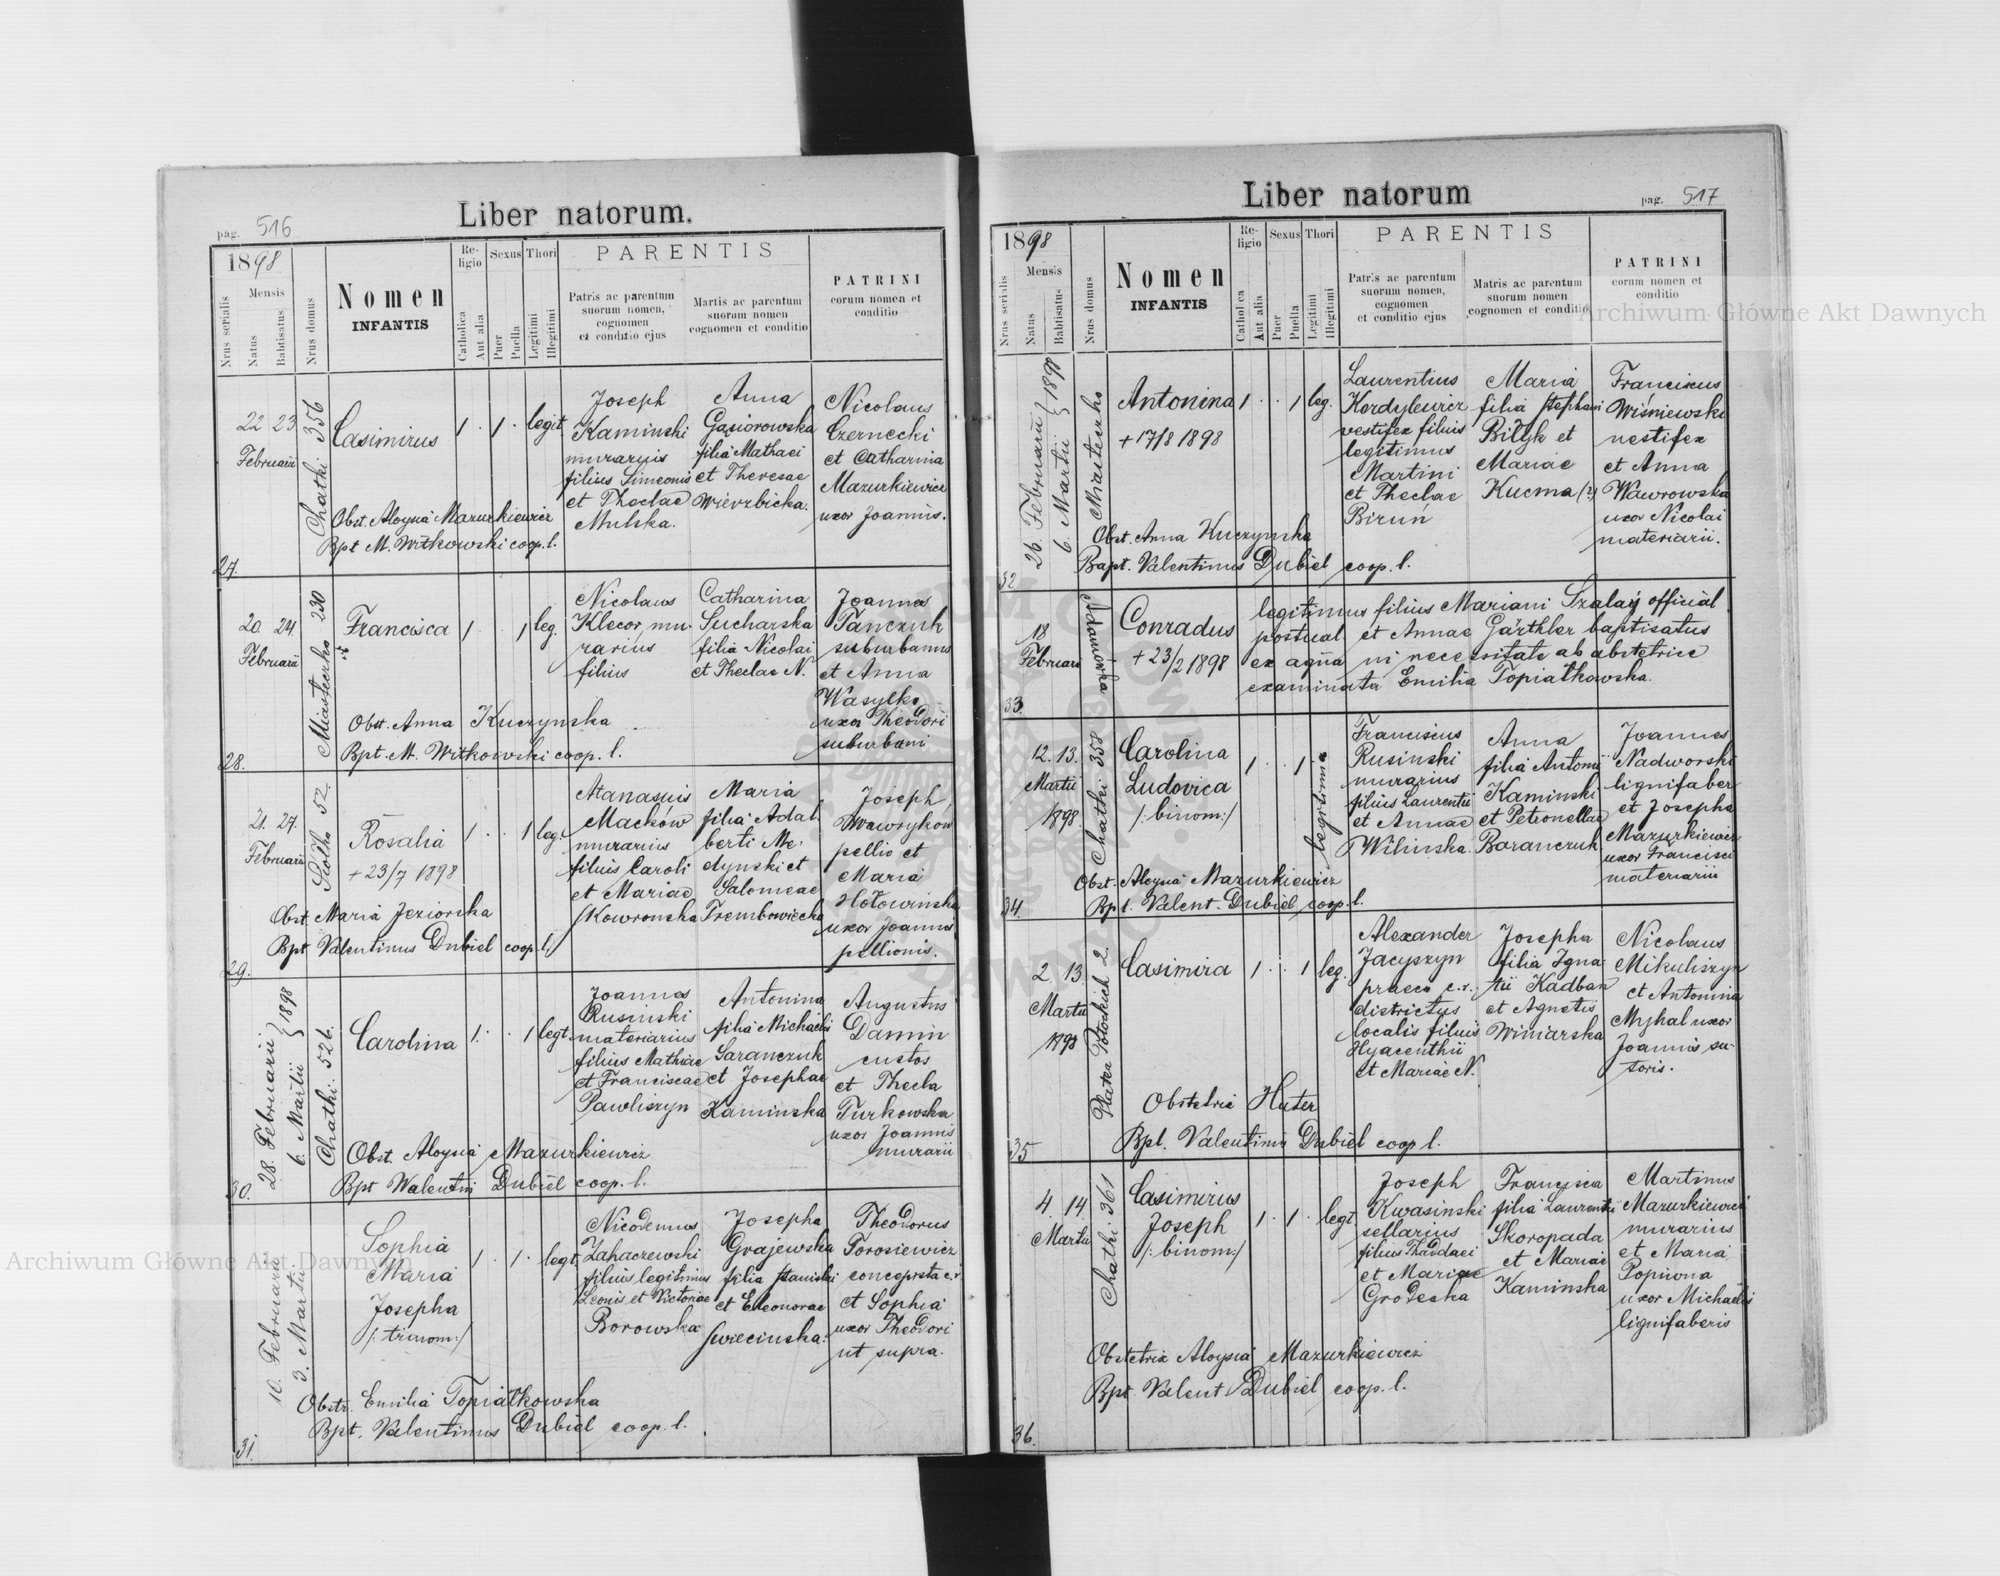 Liber natorum.
pag. 516
1898
Nrus serialis
Mensis
Natus
Babtisatus
Nrus domus
Nomen
INFANTIS
Religio
Catholica
Aut alia
Sexus
Puer
Puella
Thori
Legitimi
Illegitimi
PARENTIS
Patris ac parentum
suorum nomen,
cognomen
et conditio ejus
Martis ac parentum
suorum nomen
cognomen et conditio
PATRINI
eorum nomen et
conditio
27.
22 23
Februarii
Chatki 356
Casimirus
1 · 1 · legit
Joseph
Kaminski
murarius
filius Simeonis
et Theclae
Mulska.
Anna
Gąsiorowska
filia Mathaei
et Theresae
Wierzbicka.
Nicolaus
Czernecki
et Catharina
Mazurkiewicz
uxor Joannis.
Obst. Aloysia Mazurkiewicz
Bpt M. Witkowski coop. l.
28.
20. 24.
Februarii
Miasteczko 230
Francisca
1 · 1 leg.
Nicolaus
Klecor, mu-
rarius
filius
Catharina
Sucharska
filia Nicolai
et Theclae N.
Joannes
Tanczuk
suburbanus
et Anna
Wasylko
uxor Theodori
suburbani
Obst. Anna Kuczynska
Bpt. M. Witkowski coop. l.
29.
21. 27.
Februarii
52.
Rosalia
+ 23/7 1898
1 · 1 leg.
Atanasius
Maćków
murarius
filius Caroli
et Mariae
Skowronska
Maria
filia Adal-
berti Me-
dynski et
Salomeae
Trembowiecka
Joseph
Wawrykow
pellio et
Maria
Hołowinska
uxor Joannis
pellionis.
Obst Maria Jeziorska
Bpt Valentinus Dubiel coop. l.
30.
28. Februarii } 1898
6. Martii
Chatki. 526.
Carolina
1 · 1 legt.
Joannes
Rusinski
materiarius
filius Mathiae
et Franciscae
Pawliszyn
Antonina
filia Michaelis
Saranczuk
et Josephae
Kaminska
Augustus
Damm
custos
et Thecla
Turkowska
uxor Joannis
murarii
Obst. Aloysia Mazurkiewicz
Bpt Walentin Dubiel coop. l.
31.
10. Februarii
3. Martii
Sophia
Maria
Josepha
/: trinom:/
1 · 1 · legt.
Nicodemus
Zahaczewski
filius legitimus
Leonis et Victoriae
Borowska
Josepha
Grajewska
filia Stanislai
et Eleonorae
Swiecinska.
Theodorus
Torosiewicz
concepista c. r.
et Sophia
uxor Theodori
ut supra.
Obstr. Emilia Topiatkowska
Bpt. Valentinus Dubiel coop. l.
Liber natorum
pag. 517
1898
Nrus serialis
Mensis
Natus
Babtisatus
Nrus domus
Nomen
INFANTIS
Religio
Cathol ca
Aut alia
Sexus
Puer
Puella
Thori
Legitimi
Illegitimi
PARENTIS
Patris ac parentum
suorum nomen,
cognomen
et conditio ejus
Matris ac parentum
suorum nomen
cognomen et conditio
PATRINI
eorum nomen et
conditio
32
26. Februarii } 1898
6. Martii
Miasteczko
Antonina
+ 17/8 1898
1 · · 1 leg.
Laurentius
Kordylewicz
vestifex filius
legitimus
Martini
et Theclae
Biruń
Maria
filia Stephani
Bilyk et
Mariae
Kucma (?)
Franciscus
Wiśniewski
vestifex
et Anna
Wawrowska
uxor Nicolai
materiarii.
Obst. Anna Kuczynska
Bapt. Valentinus Dubiel coop. l.
33.
18
Februarii
Adamówka
Conradus
+ 23/2 1898
legitimus filius Mariani Szalay official
postual. et Annae Gärthler baptisatus
ex aqua in necessitate ab abstetrice
examinata Emilia Topiatkowska.
34.
12. 13.
Martii
1898.
Chatki 358
Carolina
Ludovica
/: binom:/
1 · · 1 · legitima
Franciscus
Rusinski
murarius
filius Laurentii
et Annae
Wilinska.
Anna
filia Antonii
Kaminski
et Petronellae
Baranczuk
Joannes
Nadworski
lignifaber
et Josepha
Mazurkiewicz
uxor Francisci
materiarii
Obst. Aloysia Mazurkiewicz
Bpt. Valent. Dubiel coop. l.
35
2. 13.
Martii
1898
Platea Potockich 2.
Casimira
1 · · 1 leg.
Alexander
Jacyszyn
praeco c. r.
districtus
localis filius
Hyacenthii
et Mariae N.
Josepha
filia Igna-
tii Kadban
et Agnetis
Winiarska
Nicolaus
Mikuliszyn
et Antonina
Myhal uxor
Joannis su-
toris.
Obstetrix Huter
Bpt. Valentinus Dubiel coop l.
36.
4. 14
Martii
Chatki. 361
Casimirus
Joseph
/: binom:/
1 · 1 · legt.
Joseph
Kwasinski
sellarius
filius Thaddaei
et Mariae
Grodecka
Francisca
filia Laurentii
Skoropada
et Mariae
Kaminska
Martinus
Mazurkiewicz
murarius
et Maria
Popiwna
uxor Michaelis
lignifaberis
Obstetrix Aloysia Mazurkiewicz
Bpt. Valent Dubiel coop. l.
Archiwum Główne Akt Dawnych
Archiwum Główne Akt Dawnych